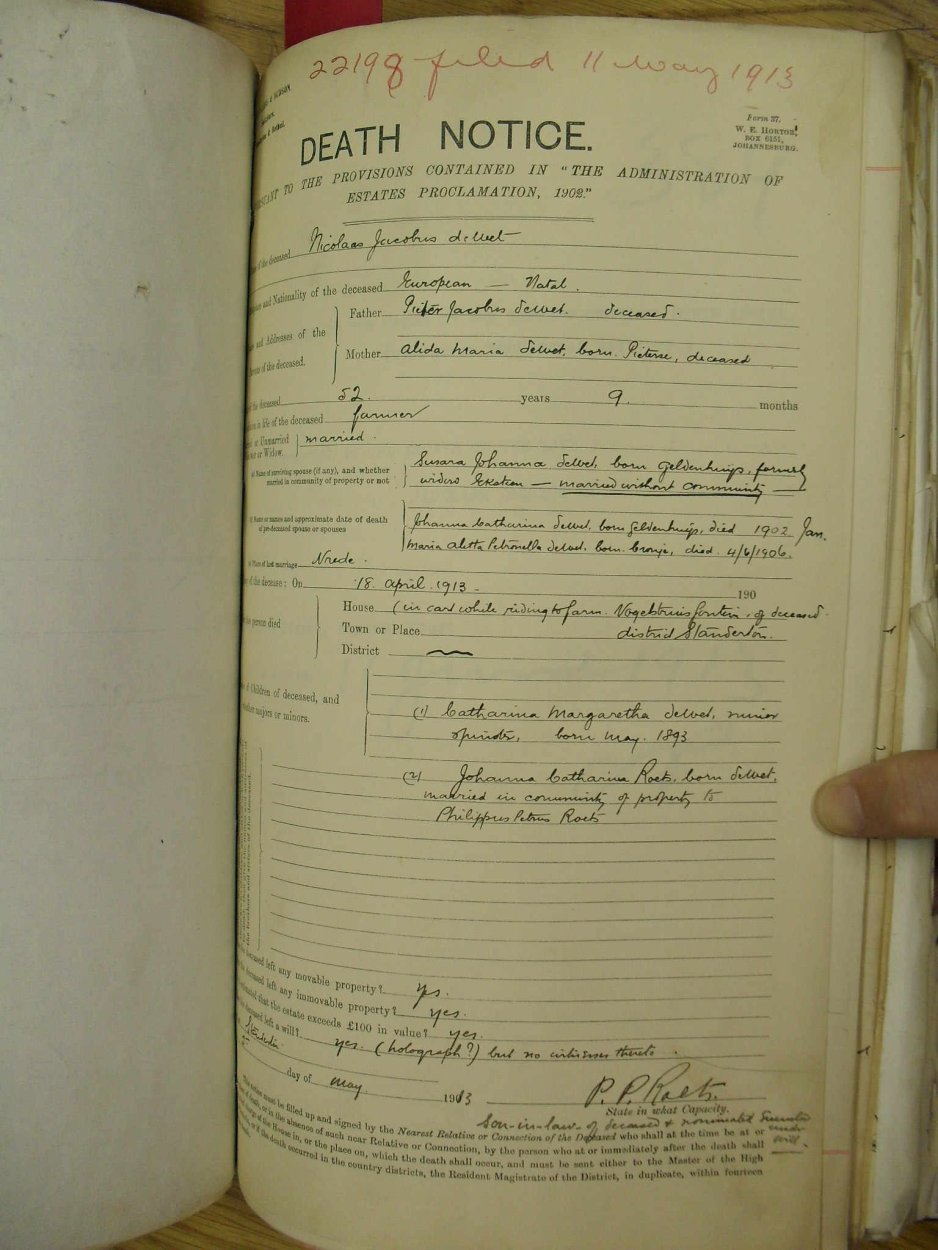 22198 filed 11 May 1913
Form 37.
W. E. HORTOR,
BOX 6151,
JOHANNESBURG.
DEATH NOTICE.
TO THE PROVISIONS CONTAINED IN "THE ADMINISTRATION OF
ESTATES PROCLAMATION, 1902."
of the deceased Nicolaas Jacobus deWet
and Nationality of the deceased European — Natal.
Father Pieter Jacobus deWet. deceased.
and Addresses of the
Mother Alida Maria deWet, born Pieterse, deceased
of the deceased.
of the deceased 52 years 9. months
in life of the deceased farmer
or Unmarried married.
or Widow.
Name of surviving spouse (if any), and whether Susara Johanna deWet, born Geldenhuijs, formerly
married in community of property or not widow — married without community
Name or names and approximate date of death Johanna Catharina deWet, born Geldenhuijs, died 1902 Jan.
of pre-deceased spouse or spouses Maria Aletta Petronella deWet, born Cronje, died 4/6/1906.
Place of last marriage Vrede.
of the decease: On 18 April 1913 190
House (in cart while riding to farm Vogelstruisfontein, of deceased
person died
Town or Place district Standerton.
District
of Children of deceased, and
majors or minors.
(1) Catharina Margaretha deWet, minor
spinster, born May. 1893
(2) Johanna Catharina Roets, born deWet,
married in community of property to
Philippus Petrus Roets
deceased left any movable property? yes.
deceased left any immovable property? yes.
that the estate exceeds £100 in value? yes.
deceased left a will? yes. (holograph?) but no witnesses thereto.
Standerton
day of May 1913 P. P. Roets.
State in what Capacity.
Son-in-law of deceased & nominated Executor
under
will.
This notice must be filled up and signed by the Nearest Relative or Connection of the Deceased who shall at the time be at or
of death, or in the absence of such near Relative or Connection, by the person who at or immediately after the death shall
charge of the House in, or the place on, which the death shall occur, and must be sent either to the Master of the High
or if the death occurred in the country districts, the Resident Magistrate of the District, in duplicate, within fourteen